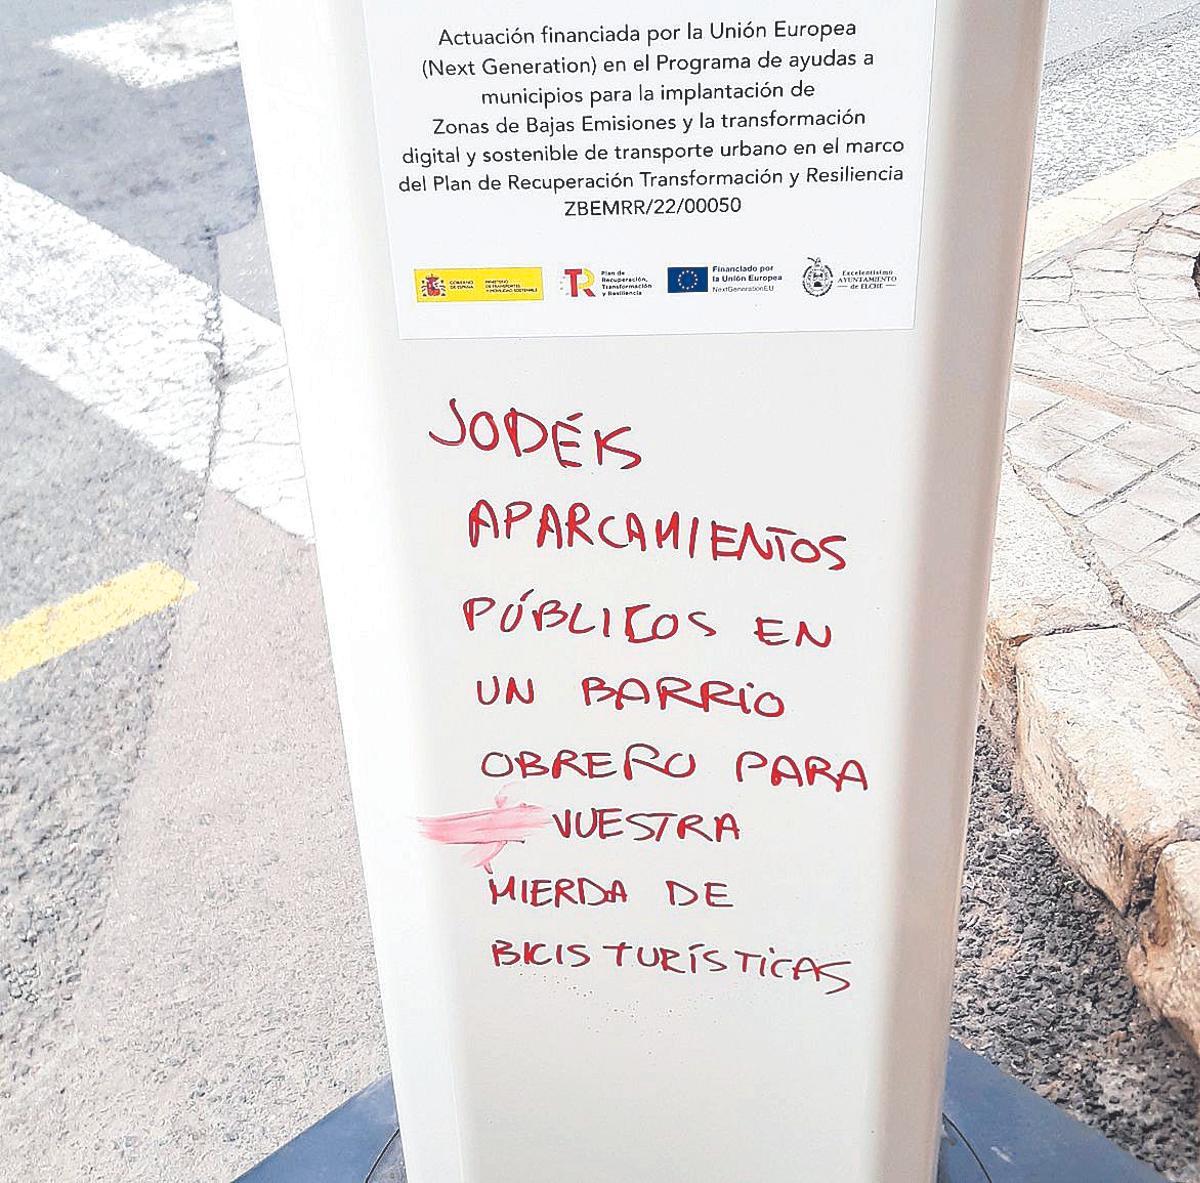 Actuación financiada por la Unión Europea
(Next Generation) en el Programa de ayudas a
municipios para la implantación de
Zonas de Bajas Emisiones y la transformación
digital y sostenible de transporte urbano en el marco
del Plan de Recuperación Transformación y Resiliencia
ZBEMRR/22/00050
GOBIERNO
DE ESPAÑA
MINISTERIO
DE TRANSPORTES
Y MOVILIDAD SOSTENIBLE
TR
Plan de
Recuperación,
Transformación
y Resiliencia
Financiado por
la Unión Europea
NextGenerationEU
Excelentísimo
AYUNTAMIENTO
de ELCHE
JODÉIS
APARCAMIENTOS
PÚBLICOS EN
UN BARRIO
OBRERO PARA
VUESTRA
MIERDA DE
BICIS TURÍSTICAS